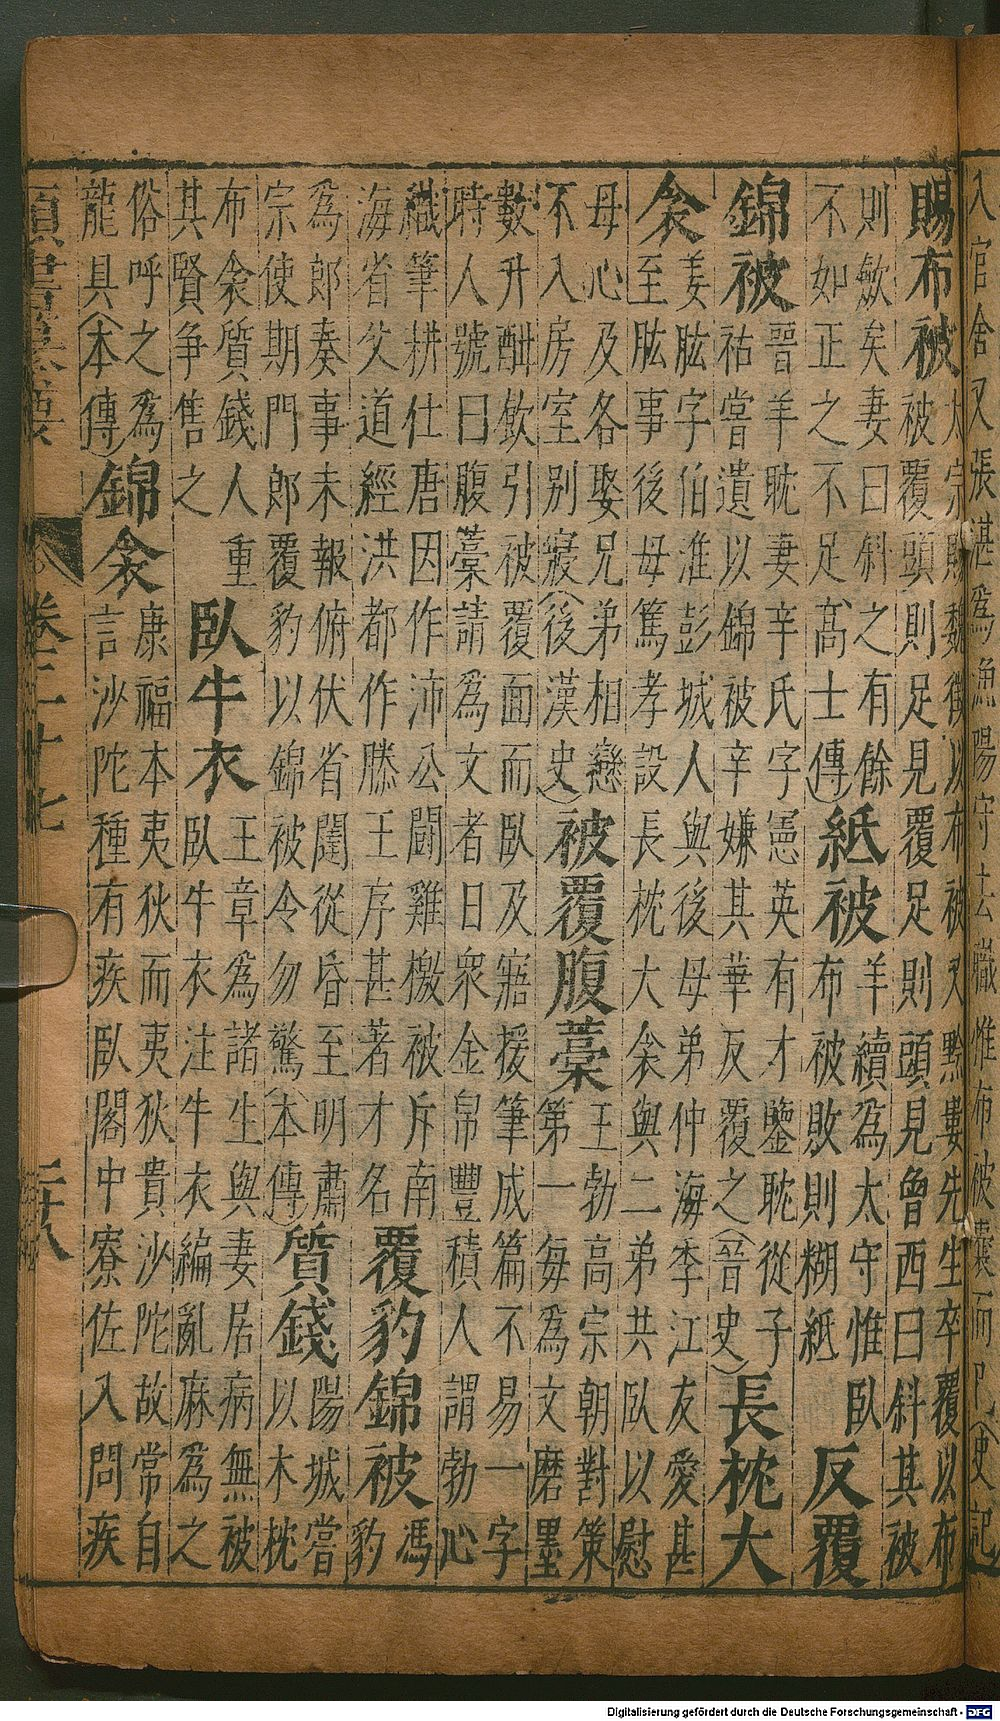 入官舍又張湛爲漁陽守去職惟布被囊而已(史記
賜布被
太宗賜魏徵以布被又黔婁先生卒覆以布
被覆頭則足見覆足則頭見曾西曰斜其被
則斂矣妻曰斜之有餘
不如正之不足(高士傳)
紙被
羊續爲太守惟臥
布被敗則糊紙
反覆
錦被
晉羊耽妻辛氏字憲英有才鑒耽從子
祜嘗遺以錦被辛嫌其華反覆之(晉史)
長枕大
衾
姜肱字伯淮彭城人與後母弟仲海季江友愛甚
至肱事後母篤孝設長枕大衾與二弟共臥以慰
母心及各娶兄弟相戀
不入房室別寢(後漢史)
被覆腹藁
王勃高宗朝對策
第一每爲文磨墨
數升酣飲引被覆面而臥及寤援筆成篇不易一字
時人號曰腹藁請爲文者日衆金帛豐積人謂勃心
織筆耕仕唐因作沛公鬪雞檄被斥南
海省父道經洪都作滕王序甚著才名
覆豹錦被
馮
豹
爲郎奏事未報俯伏省闥從昏至明肅
宗使期門郎覆豹以錦被令勿驚(本傳)
質錢
陽城嘗
以木枕
布衾質錢人重
其賢争售之
臥牛衣
王章爲諸生與妻居病無被
臥牛衣注牛衣編亂麻爲之
俗呼之爲
龍具(本傳)
錦衾
康福本夷狄而夷狄貴沙陀故常自
言沙陀種有疾臥閣中寮佐入問疾
二十八
Digitalisierung gefördert durch die Deutsche Forschungsgemeinschaft - DFG